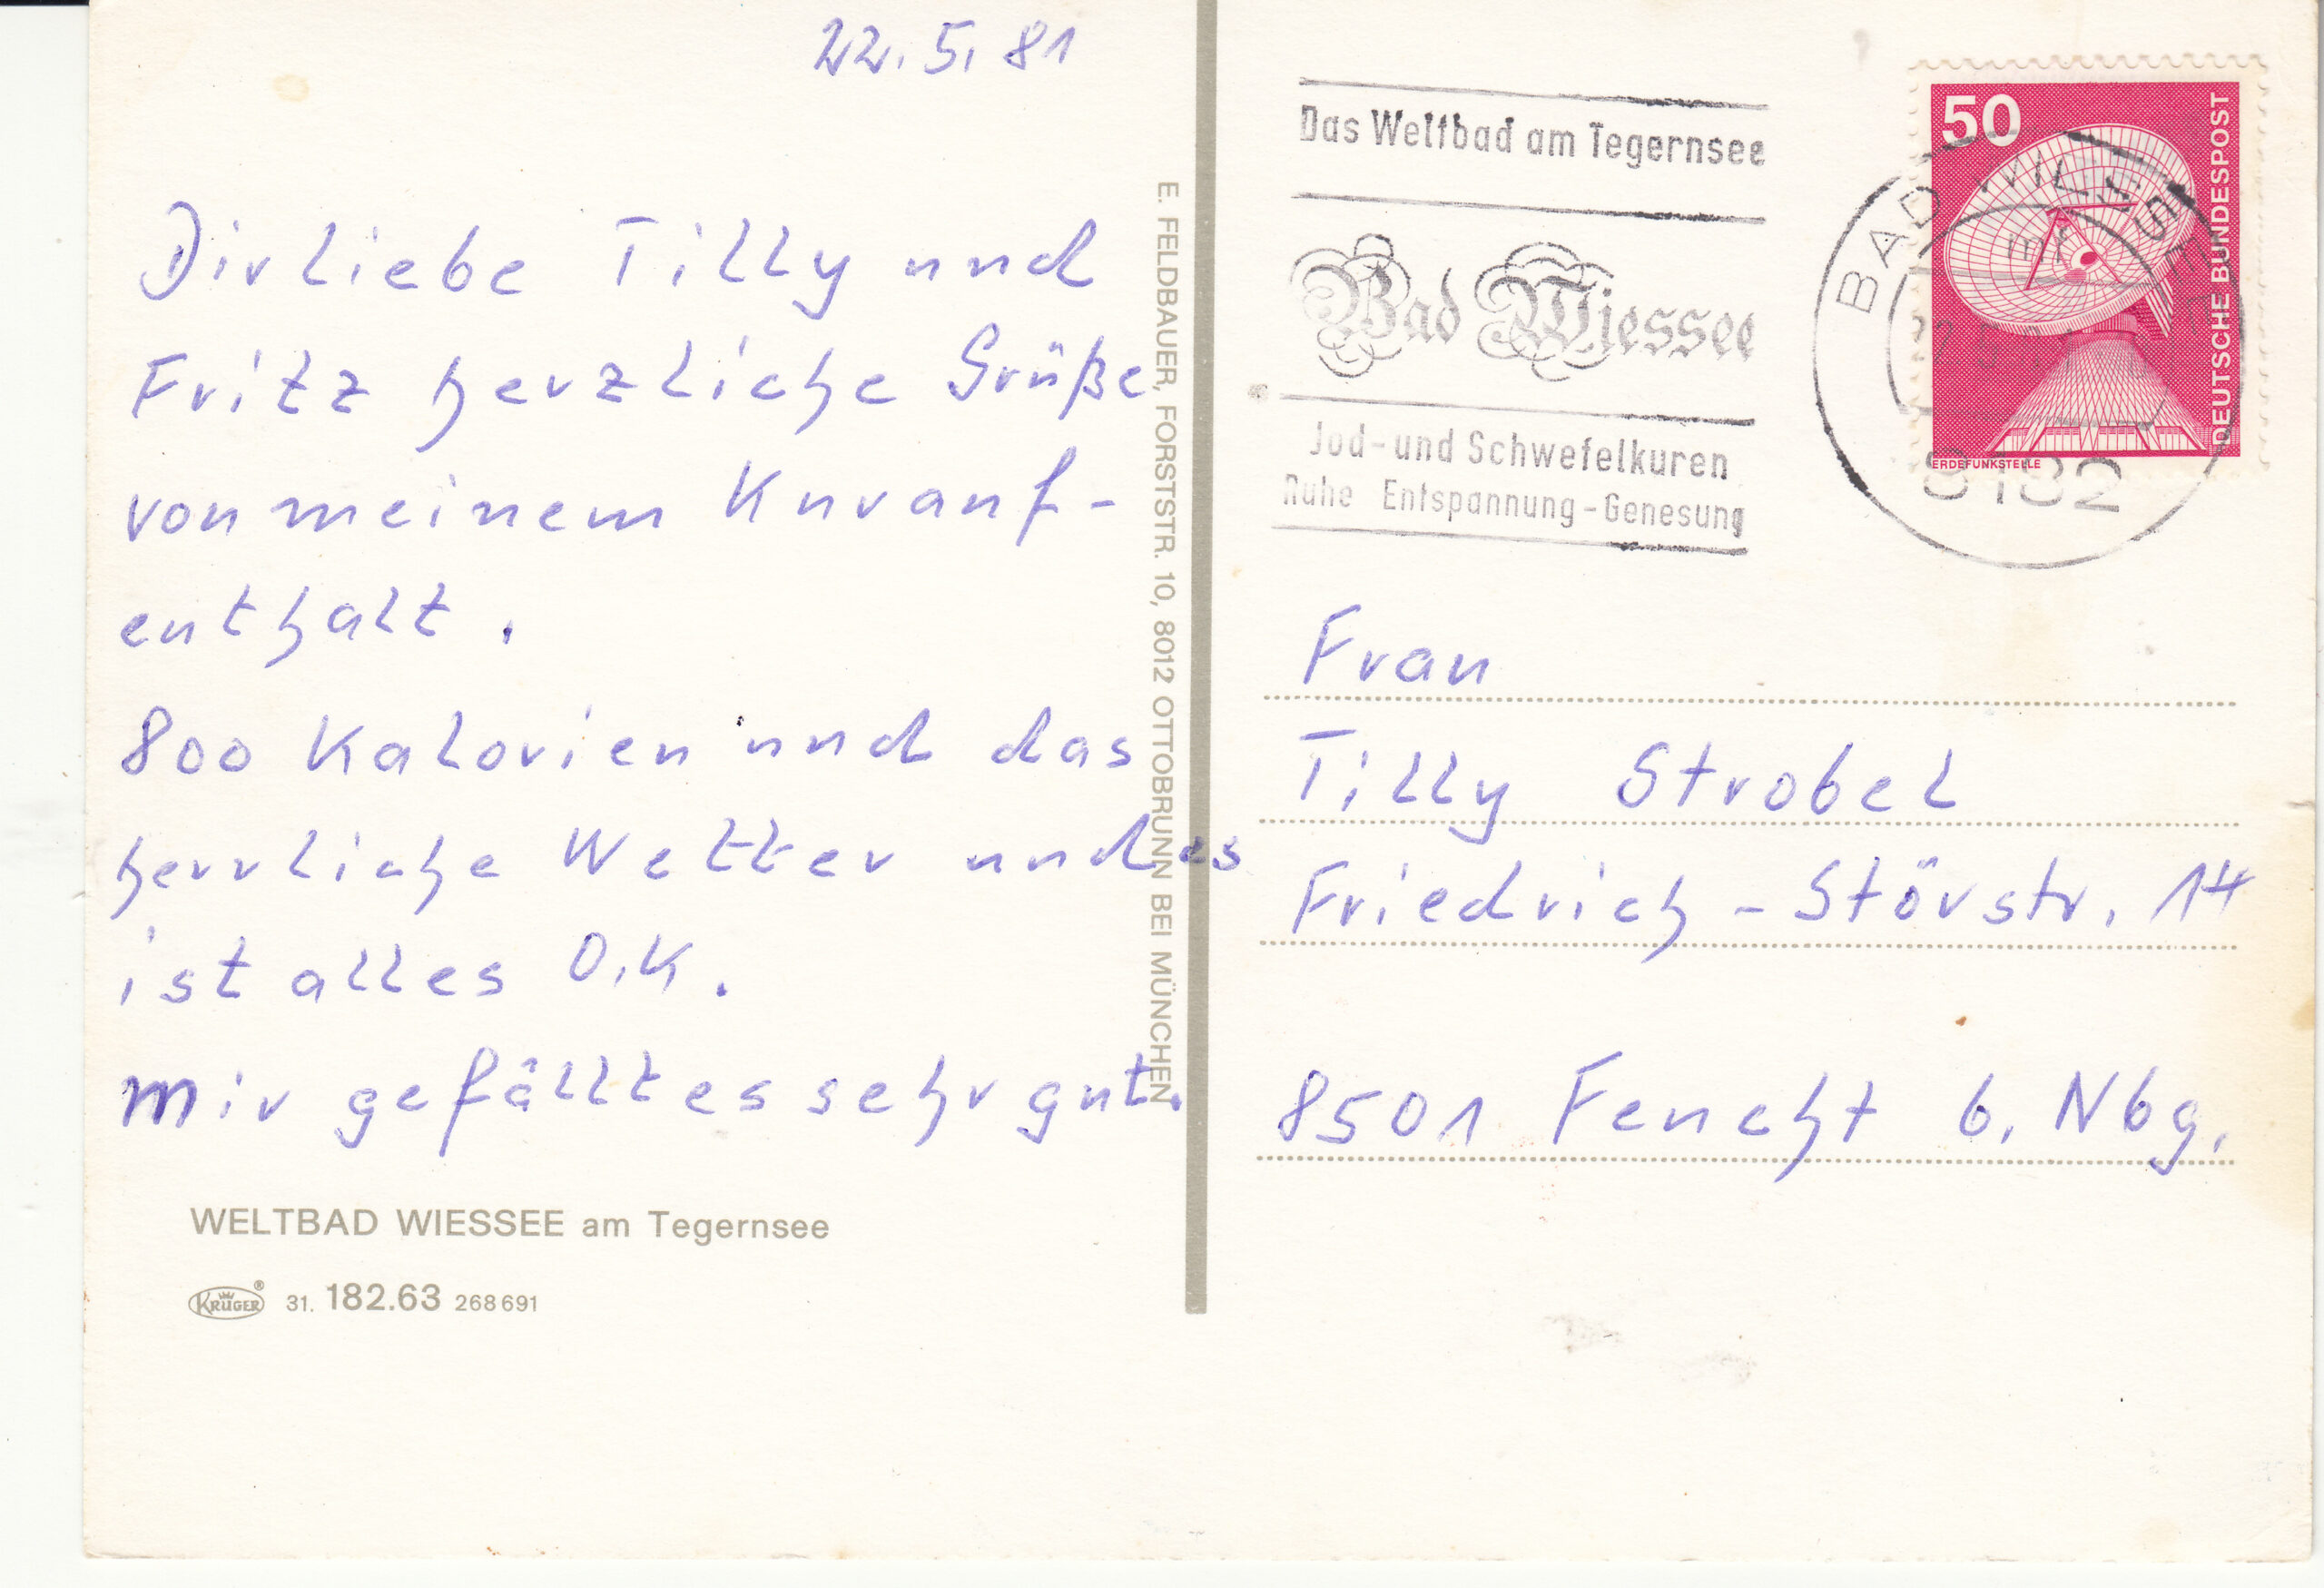 22.5.81
Dir liebe Tilly und
Fritz herzliche Grüße
von meinem Kurauf-
enthalt.
800 Kalorien und das
herrliche Wetter und es
ist alles O.K.
Mir gefällt es sehr gut.
WELTBAD WIESSEE am Tegernsee
KRÜGER® 31. 182.63 268691
E. FELDBAUER, FORSTSTR. 10, 8012 OTTOBRUNN BEI MÜNCHEN
Das Weltbad am Tegernsee
Bad Wiessee
Jod-und Schwefelkuren
Ruhe Entspannung-Genesung
BAD WIESSEE
8182
50
DEUTSCHE BUNDESPOST
ERDEFUNKSTELLE
Frau
Tilly Strobel
Friedrich-Störstr. 14
8501 Feucht b. Nbg.